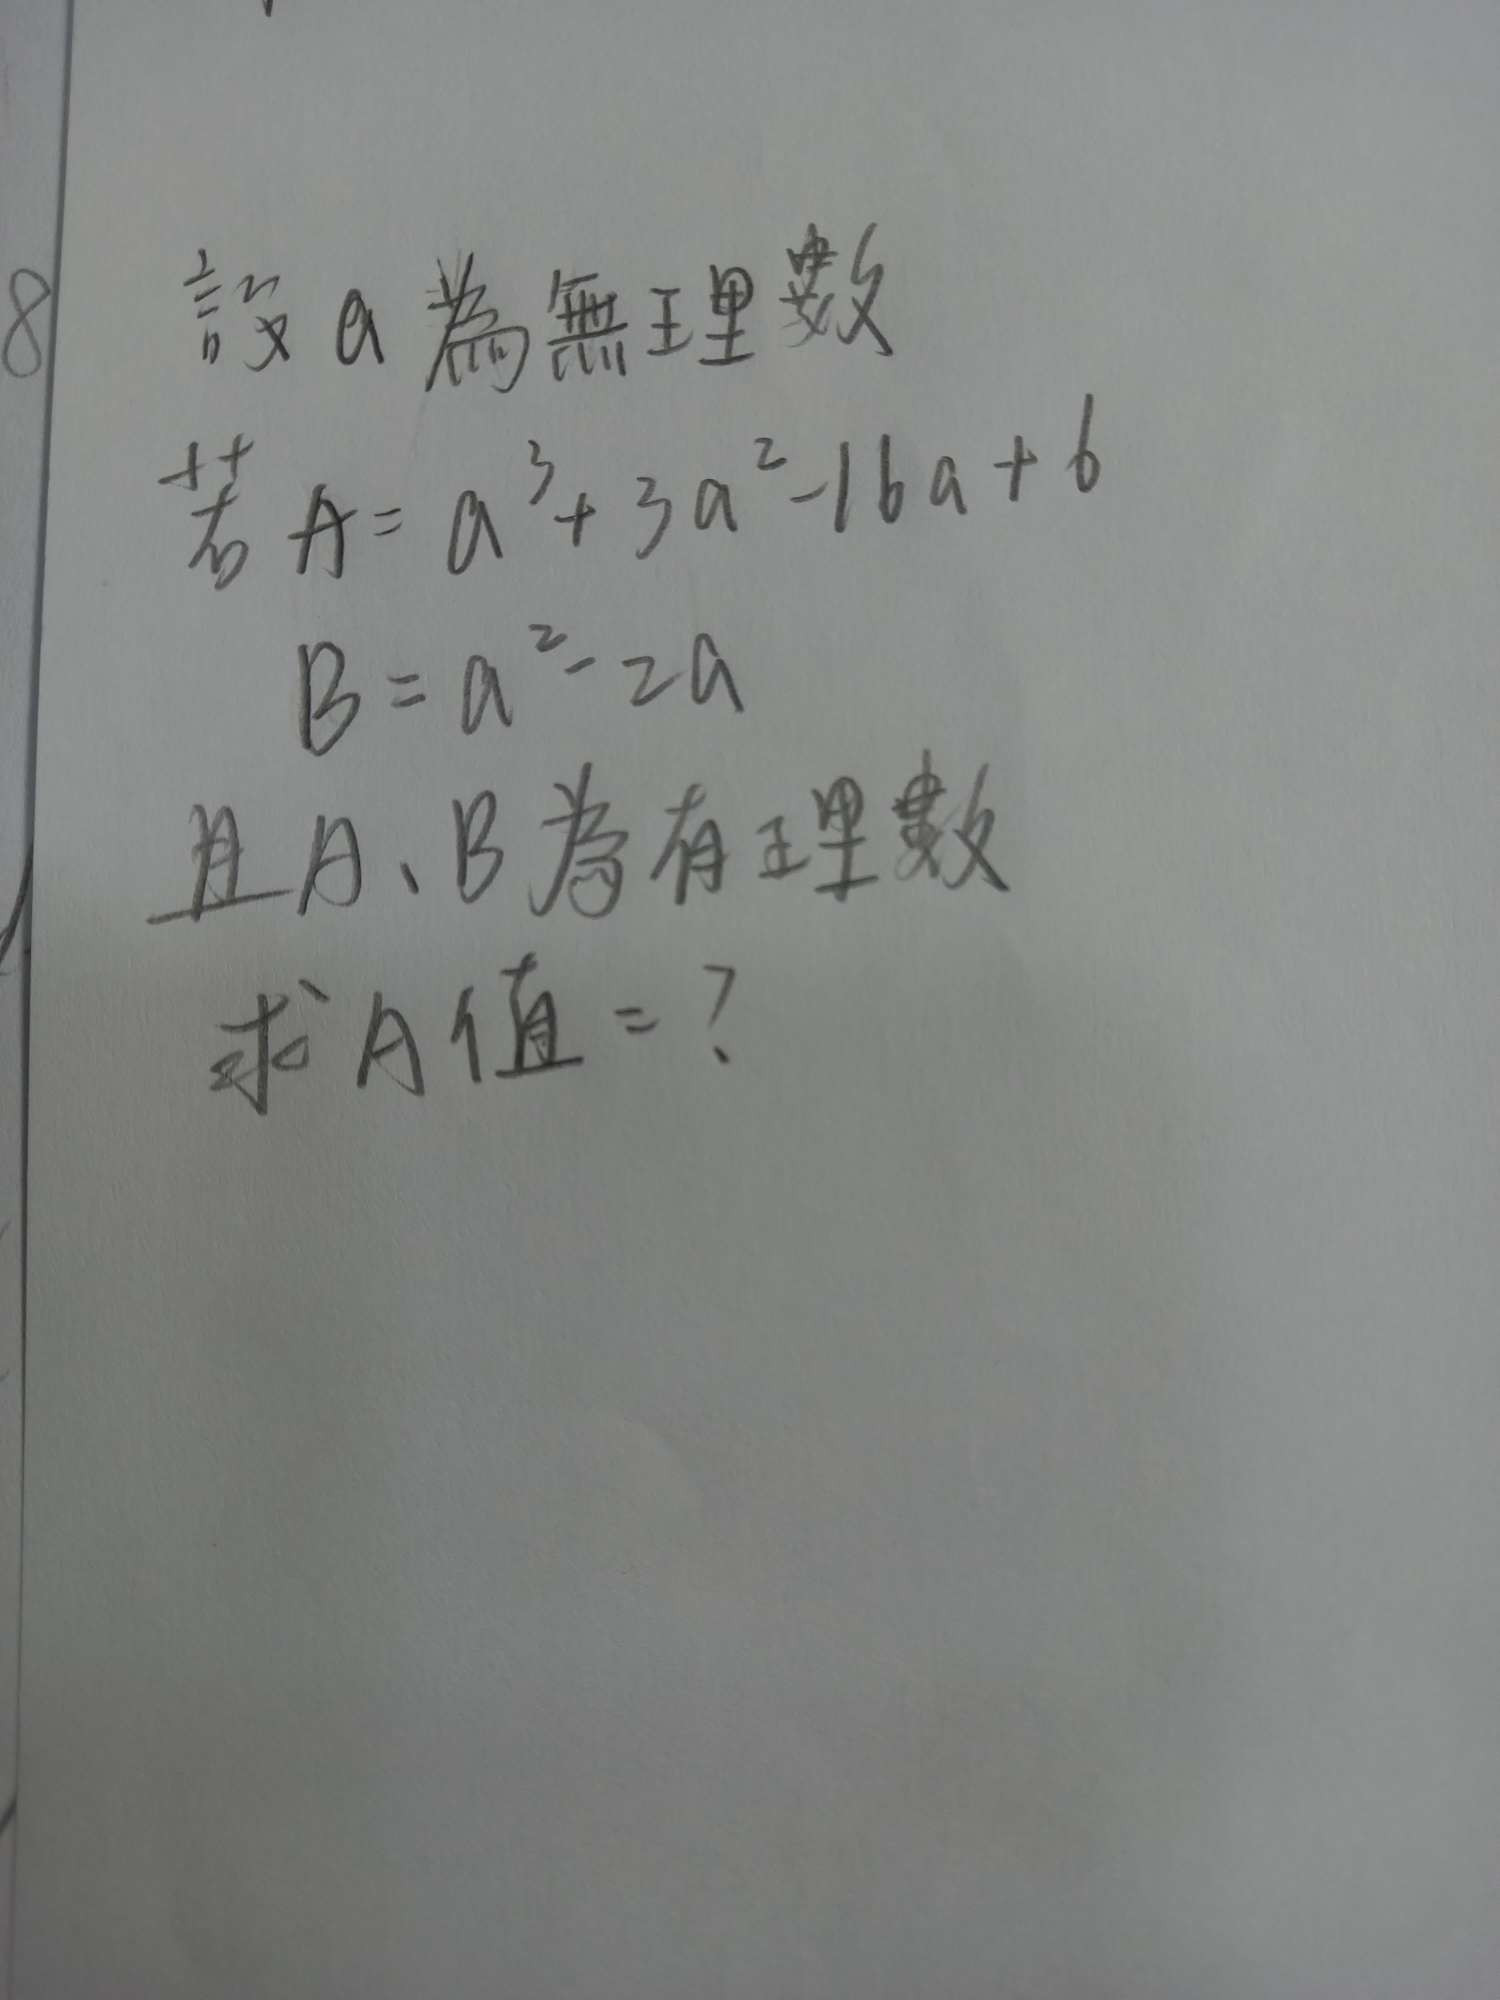 8
設a為無理數
若A=a³+3a²-16a+6
B=a²-2a
且A、B為有理數
求A值=?